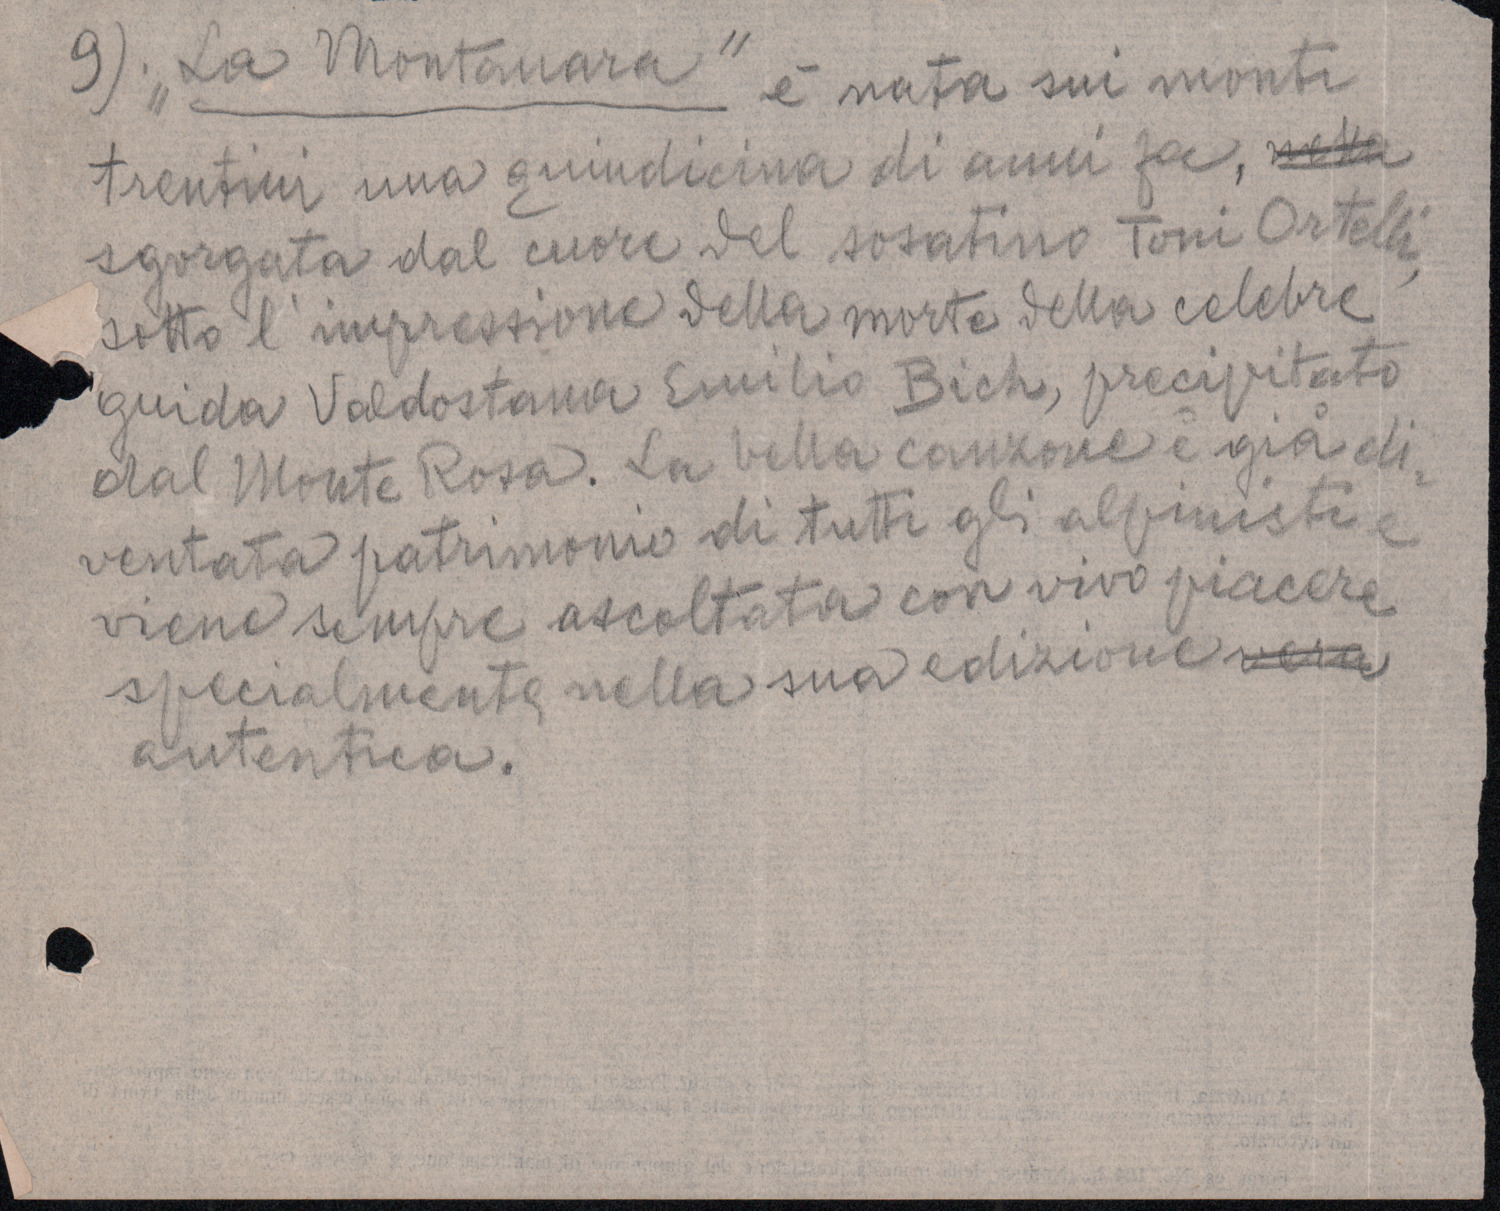 9) „La Montanara” è nata sui monti
trentini una quindicina di anni fa, nella
sgorgata dal cuore del sosatino Toni Ortelli,
sotto l'impressione della morte della celebre
guida Valdostana Emilio Bich, precipitato
dal Monte Rosa. La bella canzone è già di-
ventata patrimonio di tutti gli alpinisti e
viene sempre ascoltata con vivo piacere
specialmente nella sua edizione vera
autentica.